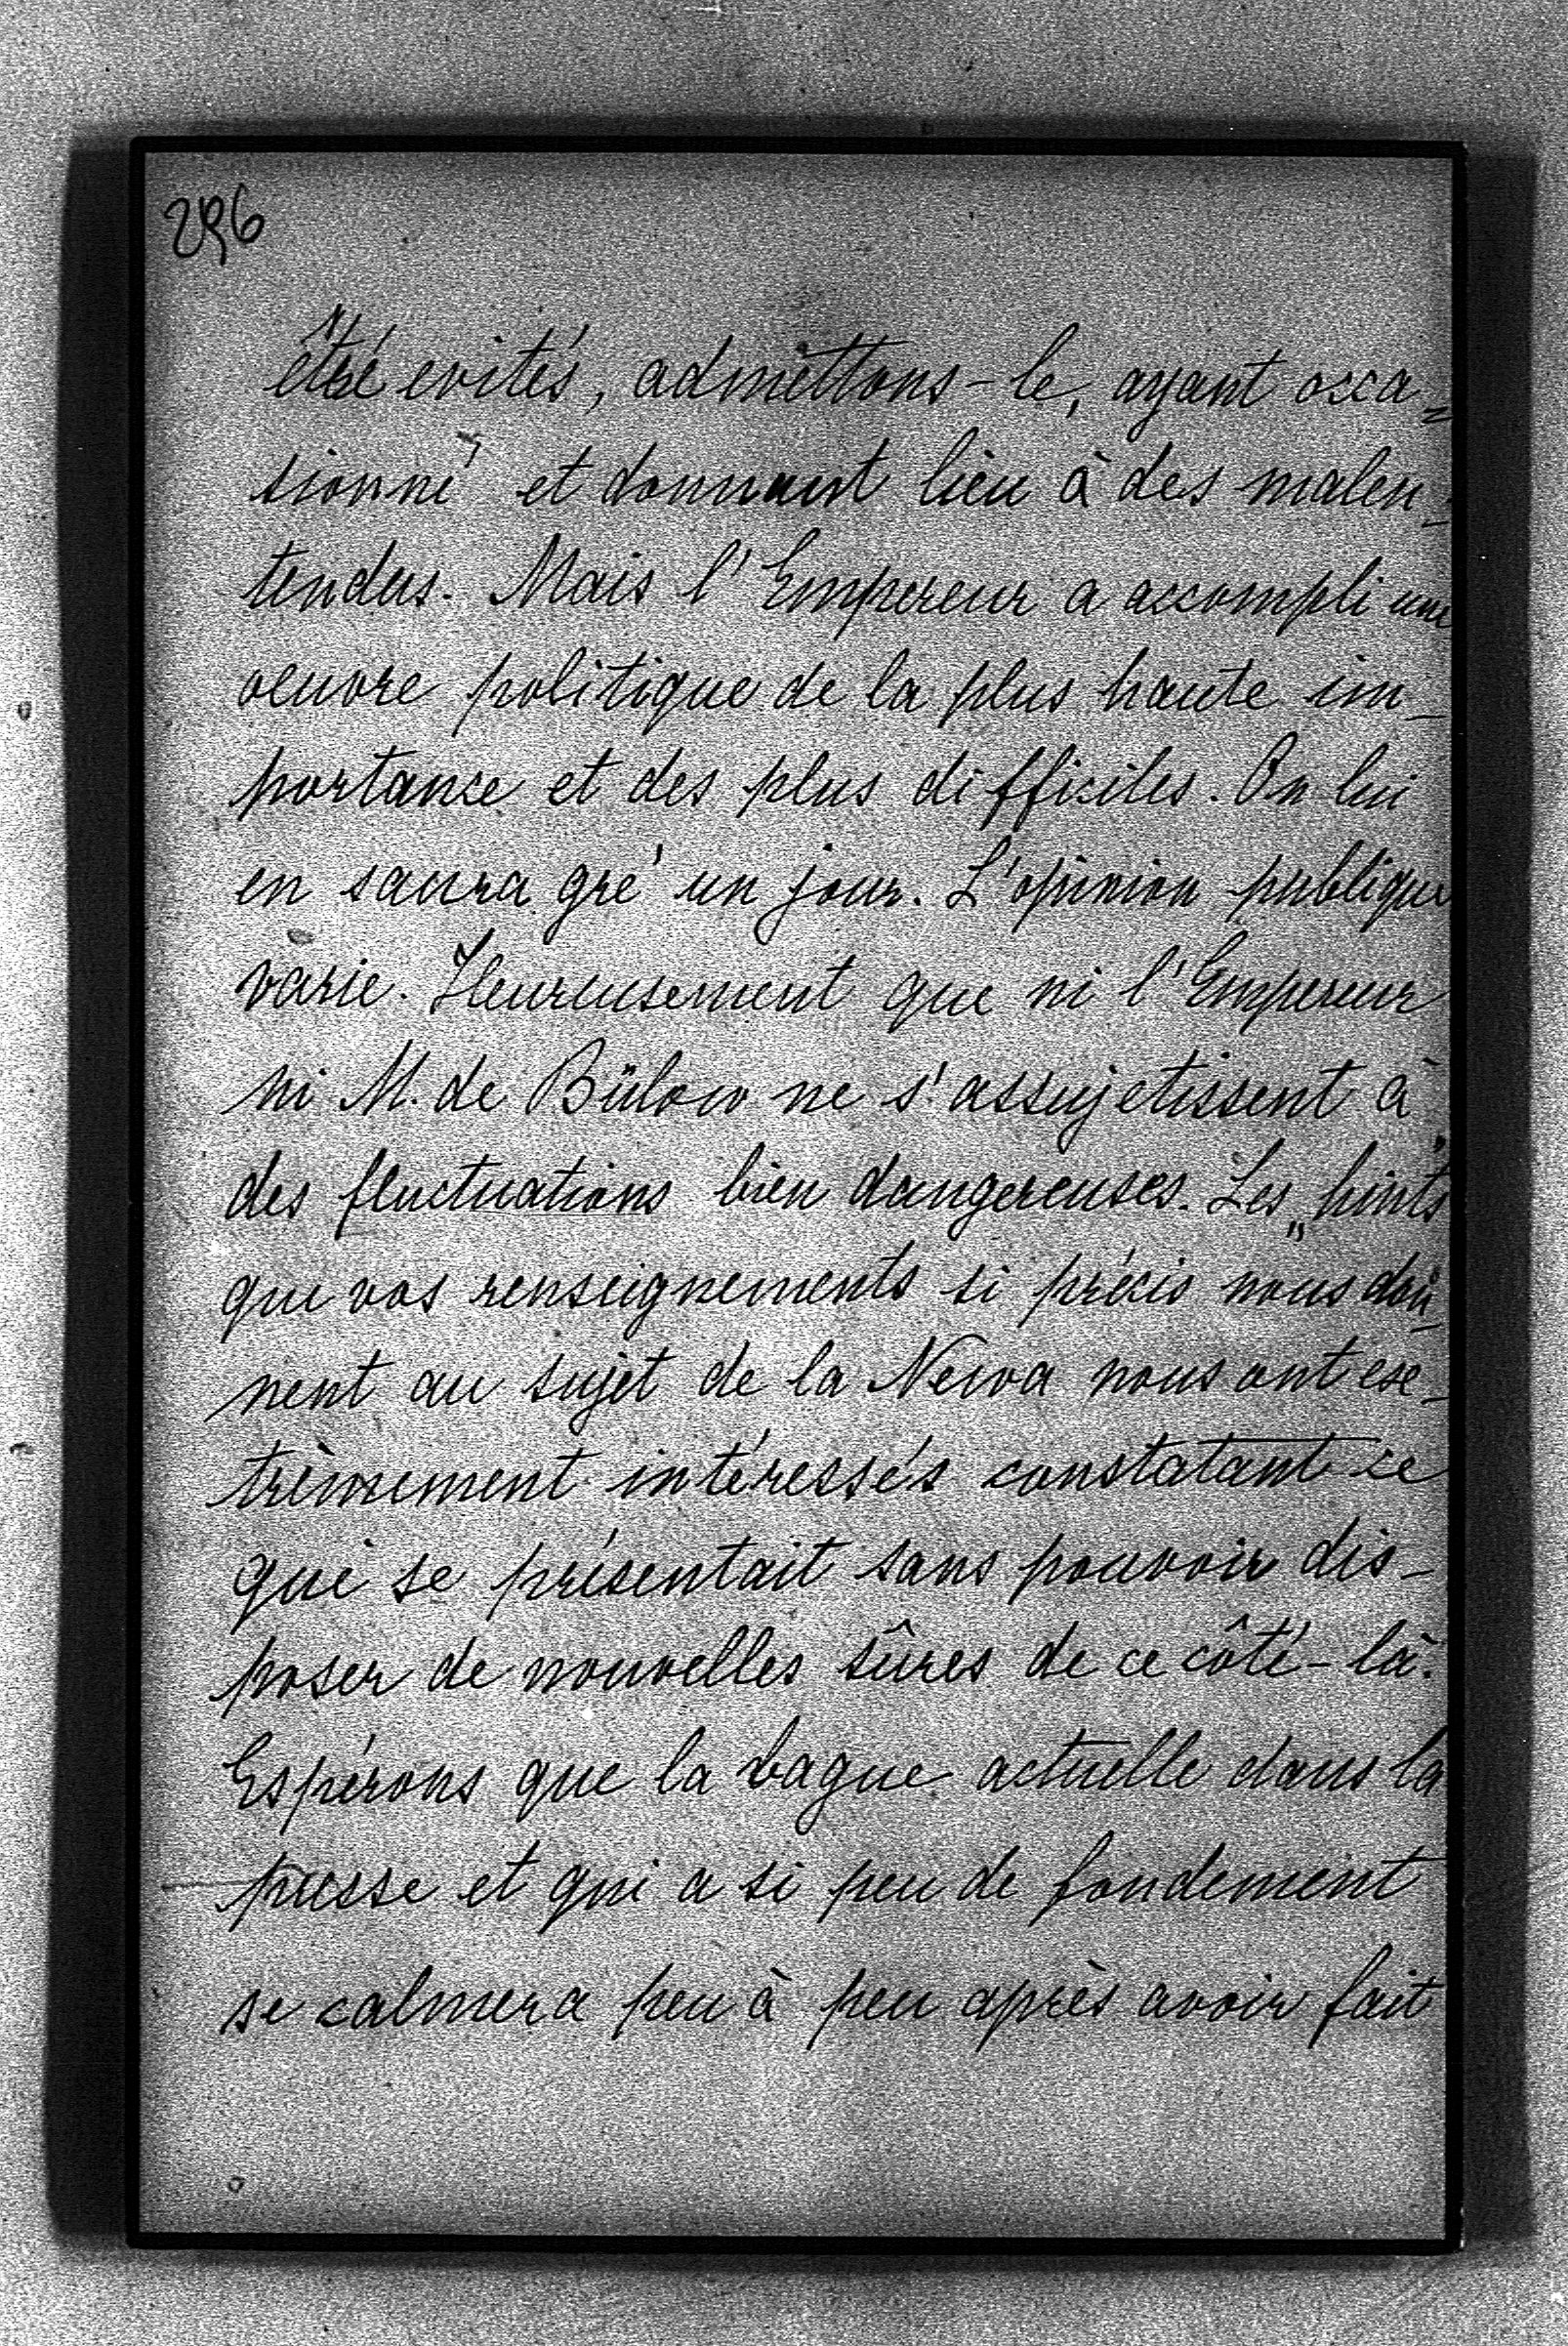 296
été evités, admettons-le, ayant occa=
sionné et donnant lieu à des malen-
tendus. Mais l'Empereur a accompli une
oeuvre politique de la plus haute im-
portance et des plus difficiles. On lui
en saura gré un jour. L'opinion publique
varie. Heureusement que ni l'Empereur
ni M. de Bülow ne s'assujetissent à
des fluctuations bien dangereuses. Les „hints"
que vos renseignements si précis nous don-
nent au sujet de la Newa nous ont ex-
trèmement intéressés constatant ce
qui se présentait sans pouvoir dis-
poser de nouvelles sûres de ce côté-là.
Espérons que la vague actuelle dans la
presse et qui a si peu de fondement
se calmera peu à peu après avoir fait